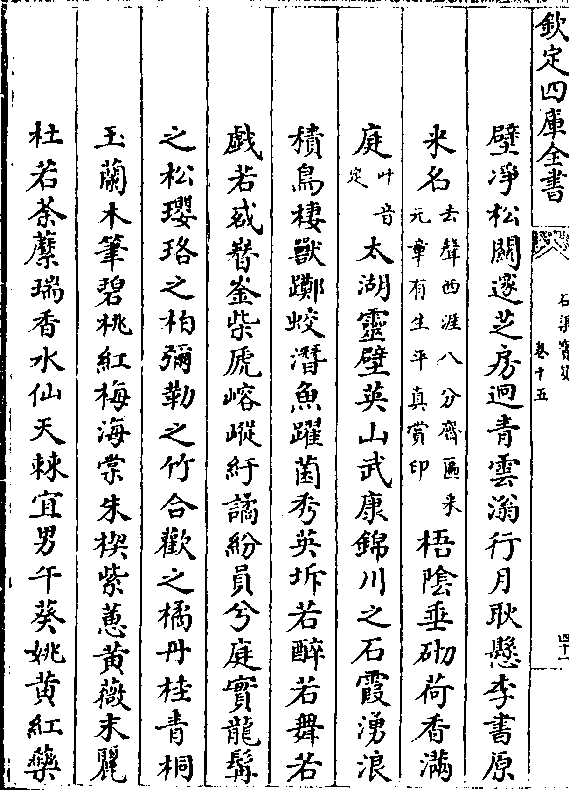 欽定四庫全書
石渠寳笈
卷十五
四十一
壁凈松關邃芝房迥青雲滃行月耿懸李書原
来名去聲西涯八分齋匾来元章有生平真賞印梧陰垂砌荷香滿
庭叶音定太湖靈壁英山武康錦川之石霞湧浪
積鳥棲獸躑蛟潛魚躍菌秀英坼若醉若舞若
戯若惑嶜崟柴虒嵱嵷紆譎紛員兮庭實龍髯
之松瓔珞之柏彌勒之竹合歡之橘丹桂青桐
玉蘭木筆碧桃紅梅海棠朱楔紫蔥黃薇末麗
杜若荼蘼瑞香水仙天棘宜男午葵姚黃紅藥